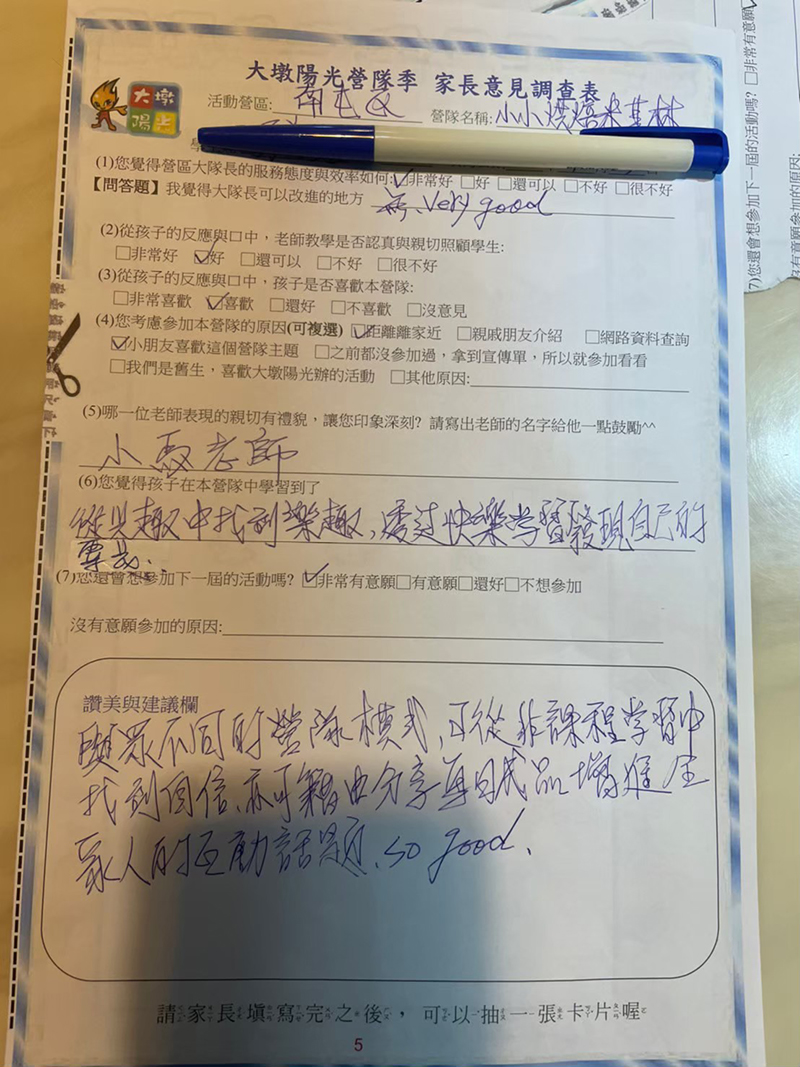 大墩陽光營隊季 家長意見調查表
大墩
陽光
活動營區: 南屯區 營隊名稱: 小小烘焙米其林
(1)您覺得營區大隊長的服務態度與效率如何: ☑非常好 □好 □還可以 □不好 □很不好
【問答題】我覺得大隊長可以改進的地方 無, Very good
(2)從孩子的反應與口中，老師教學是否認真與親切照顧學生:
□非常好 ☑好 □還可以 □不好 □很不好
(3)從孩子的反應與口中，孩子是否喜歡本營隊:
□非常喜歡 ☑喜歡 □還好 □不喜歡 □沒意見
(4)您考慮參加本營隊的原因(可複選) ☑距離離家近 □親戚朋友介紹 □網路資料查詢
☑小朋友喜歡這個營隊主題 □之前都沒參加過，拿到宣傳單，所以就參加看看
□我們是舊生，喜歡大墩陽光辦的活動 □其他原因:
(5)哪一位老師表現的親切有禮貌，讓您印象深刻? 請寫出老師的名字給他一點鼓勵^^
小馬老師
(6)您覺得孩子在本營隊中學習到了
從興趣中找到樂趣，透過快樂学習發現自己的
專長.
(7)您還會想參加下一屆的活動嗎? ☑非常有意願□有意願□還好□不想參加
沒有意願參加的原因:
讚美與建議欄
與眾不同的營隊模式，可從非課程学習中
找到自信、亦可藉由分享每日成品增進全
家人的互動話題、so good.
請家長填寫完之後，可以抽一張卡片喔
5
□非常有意願
7)您還會想參加下一屆的活動嗎?
沒有意願參加的原因: